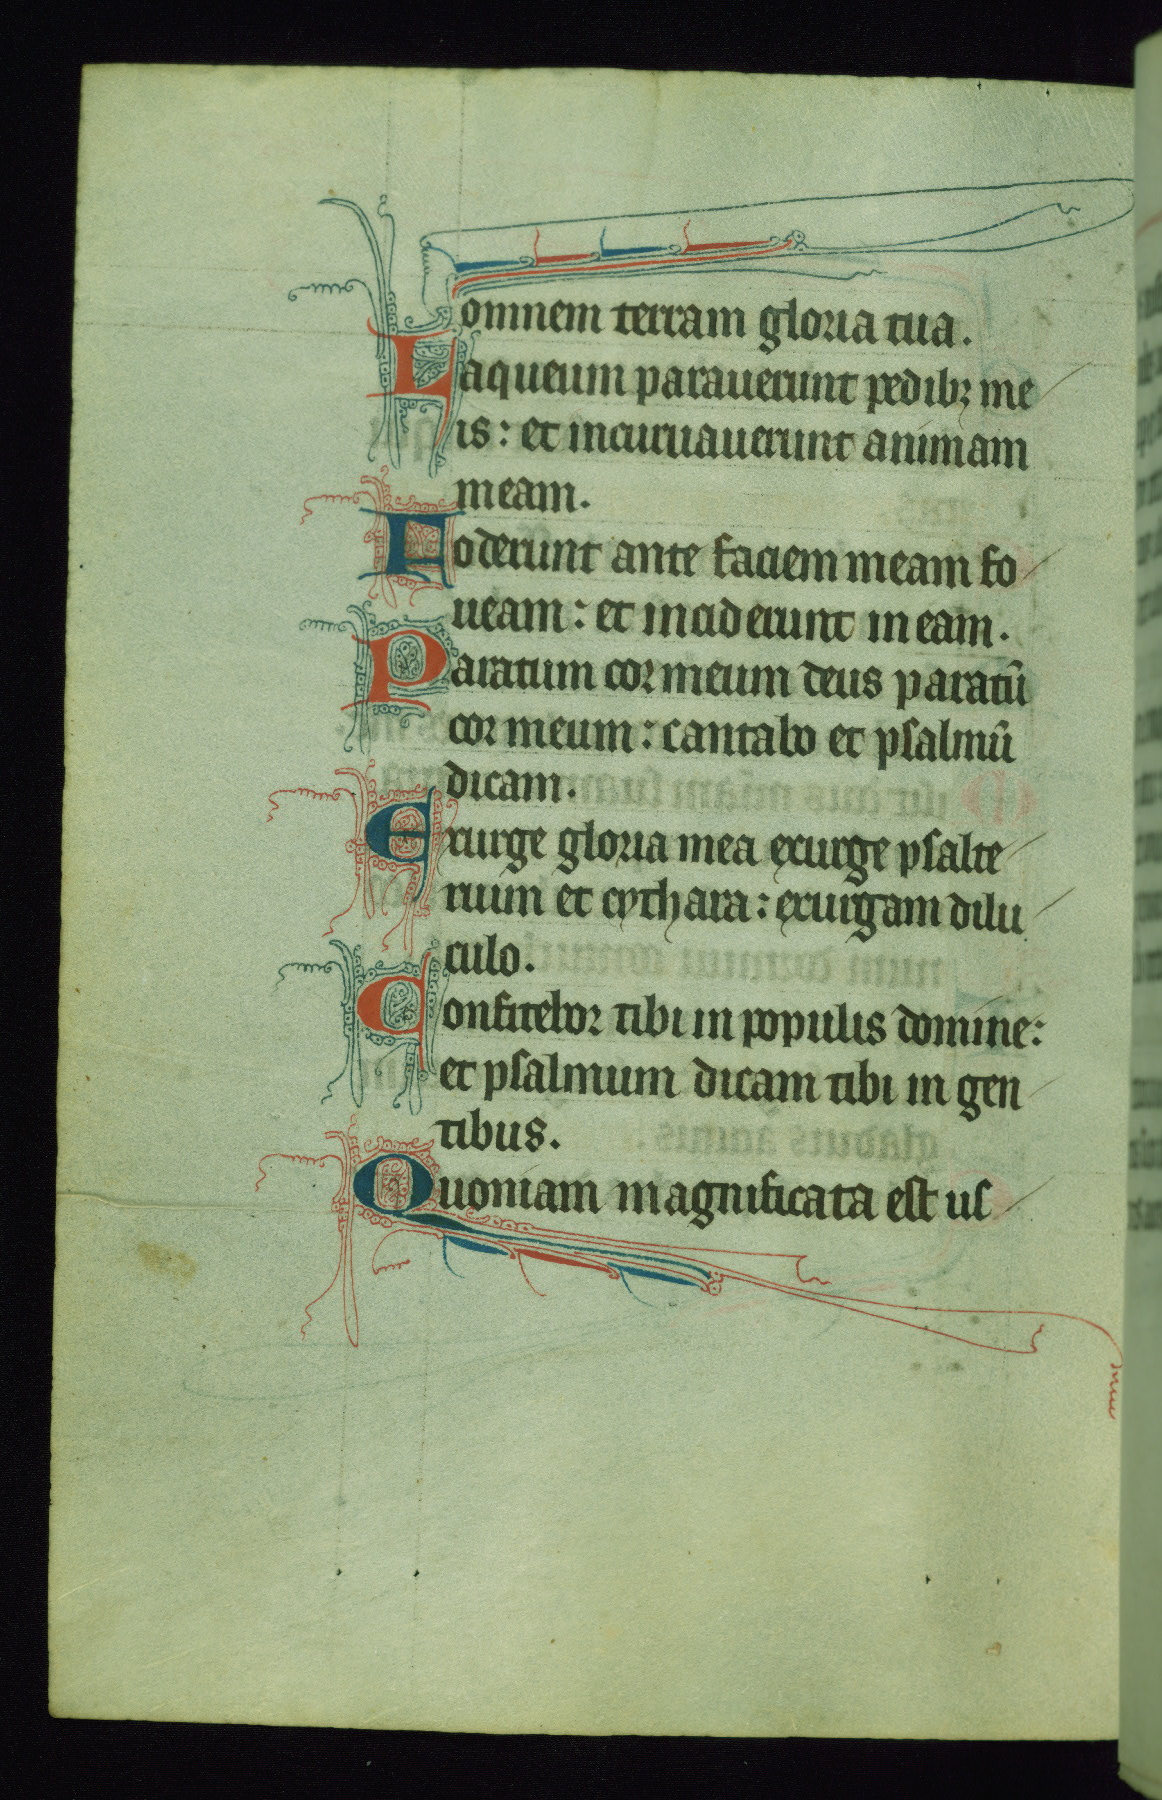 omnem terram gloria tua.
Laqueum parauerunt pedibꝫ me
is: et incuruauerunt animam
meam.
Foderunt ante faciem meam fo
ueam: et inciderunt in eam.
Paratum cor meum deus paratū
cor meum: cantabo et psalmū
dicam.
Exurge gloria mea exurge psalte
rium et cythara: exurgam dilu
culo.
Confitebor tibi in populis domine:
et psalmum dicam tibi in gen
tibus.
Quoniam magnificata est us